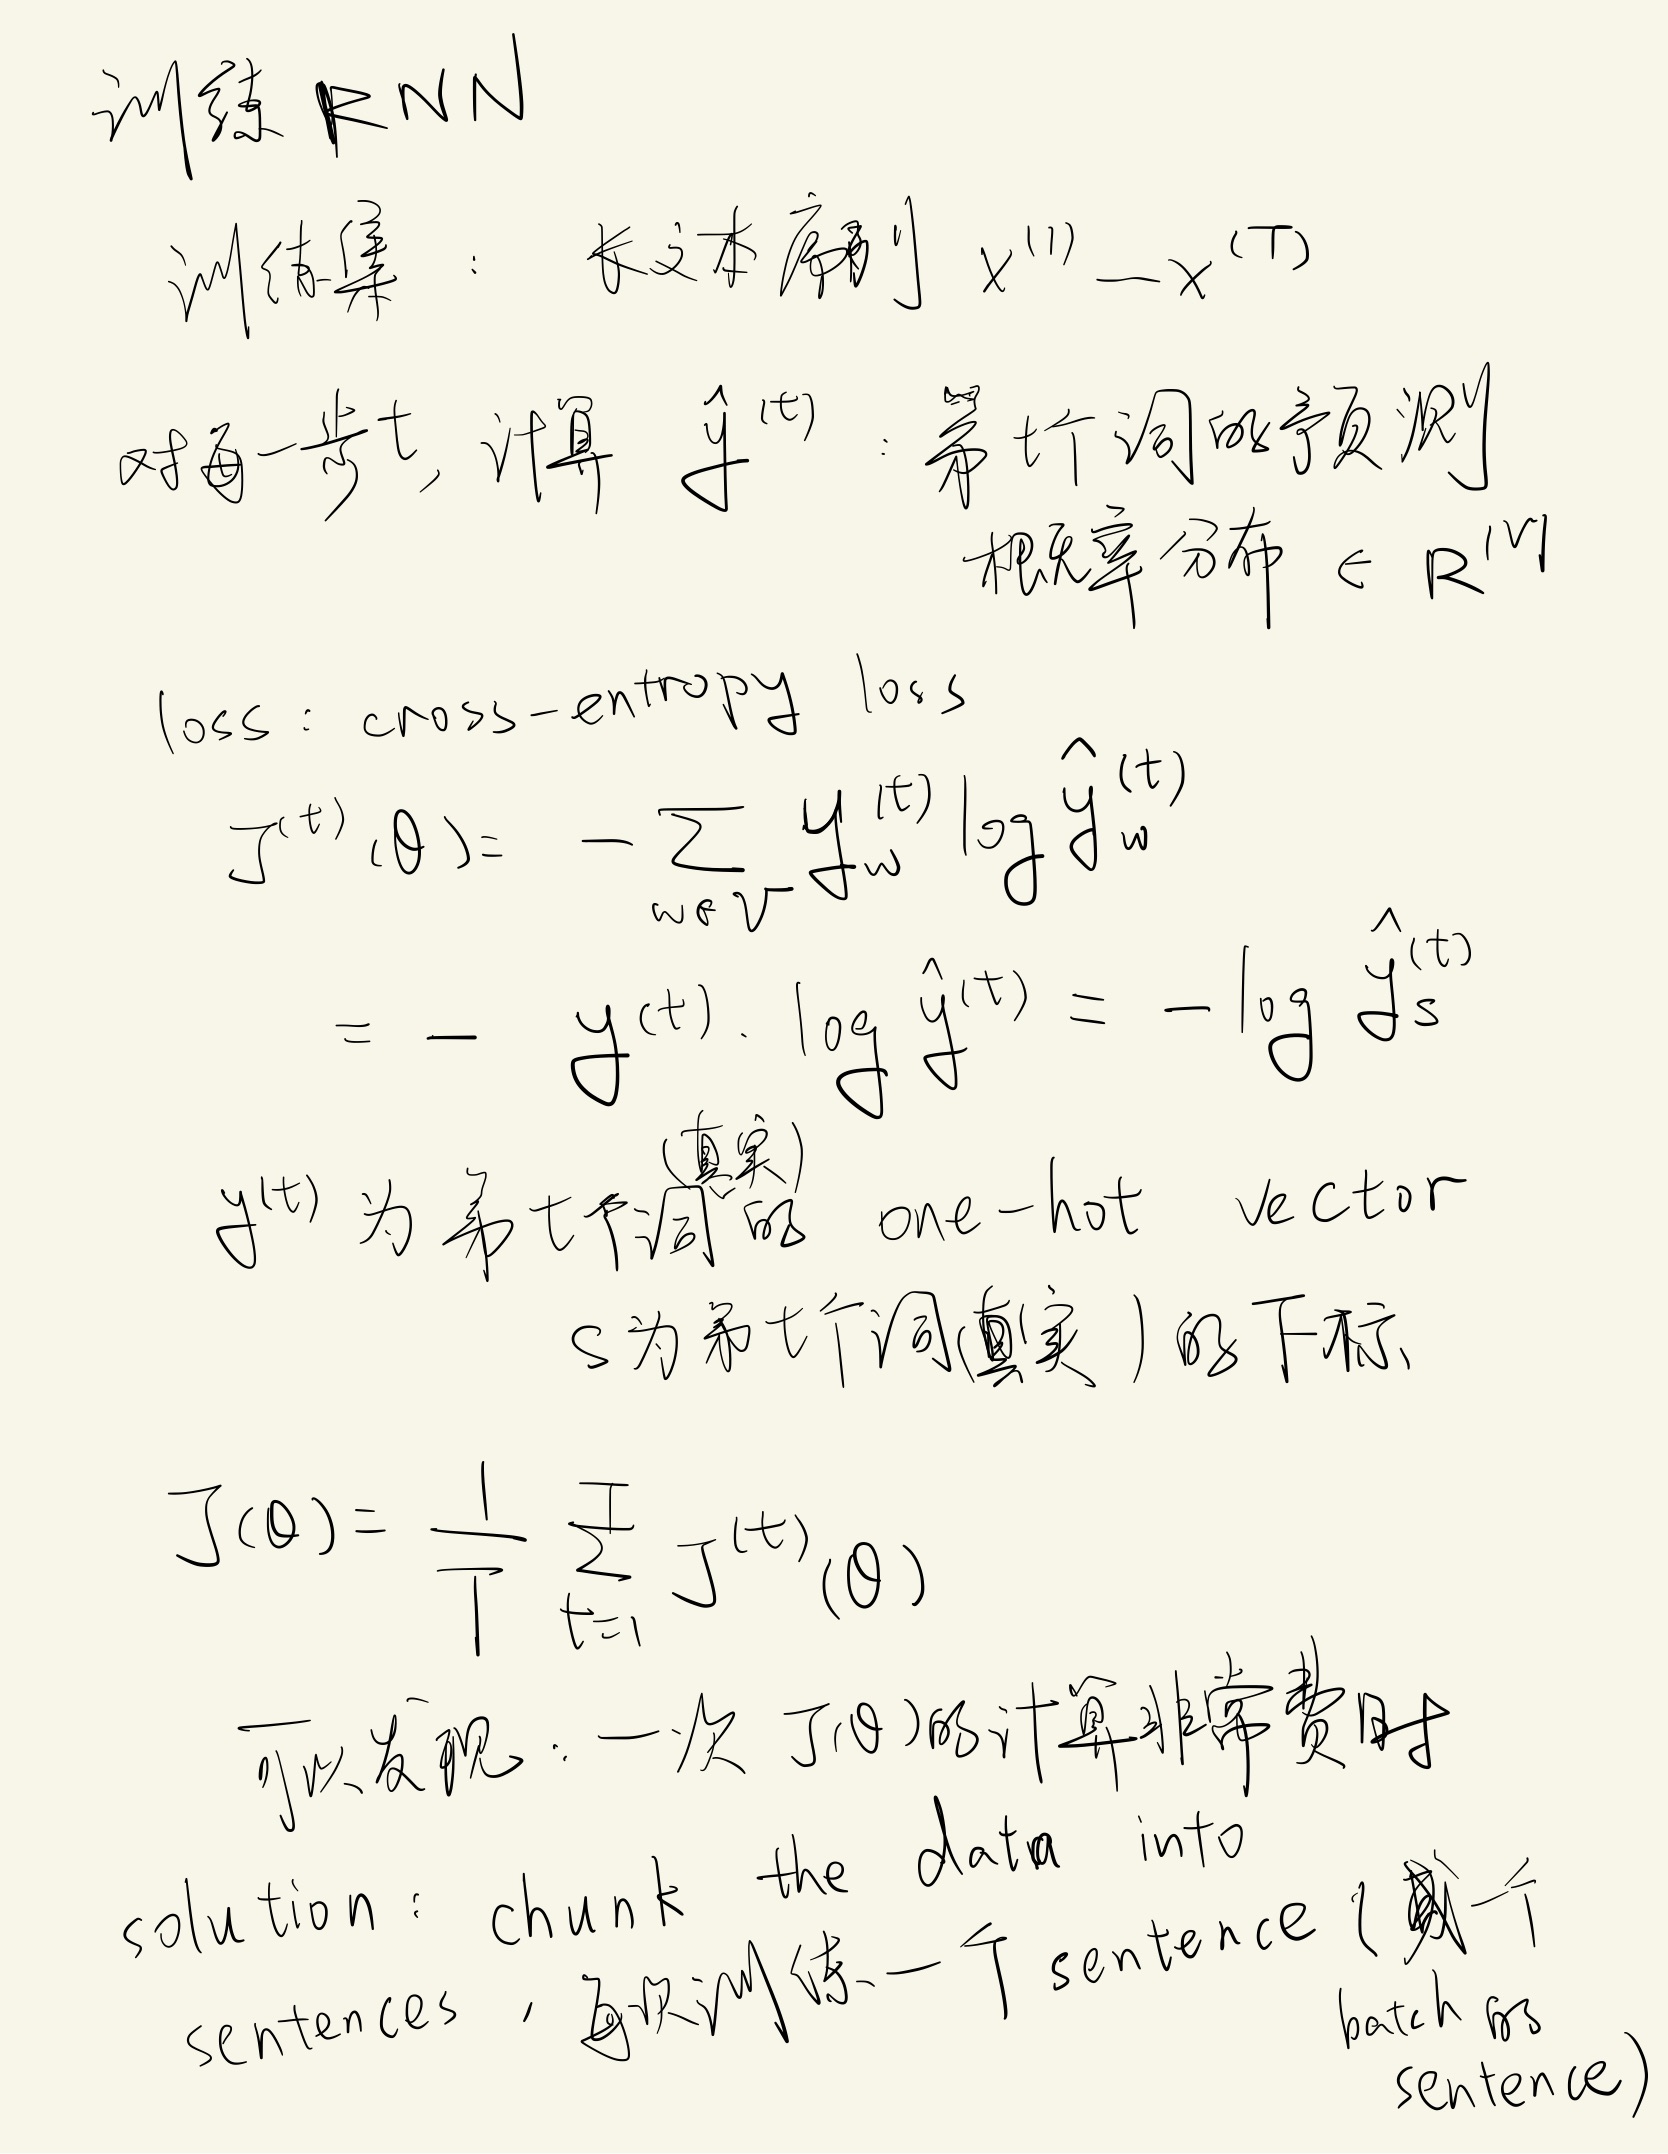 训练 RNN
训练集 : 长文本序列 x^(1) — x^(T)
对每一步t, 计算 ŷ^(t) : 第t个词的预测
概率分布 ∈ R^|V|
loss : cross-entropy loss
J^(t)(θ) = - ∑_{w∈V} y_w^(t) log ŷ_w^(t)
= - y^(t) · log ŷ^(t) = - log ŷ_s^(t)
(真实)
y^(t) 为第t个词的 one-hot vector
s为第t个词(真实)的下标
J(θ) = 1/T ∑_{t=1}^T J^(t)(θ)
可以发现 : 一次 J(θ)的计算非常费时
solution : chunk the data into
sentences , 每次训练一个 sentence ( 或一个
batch 的
sentence)